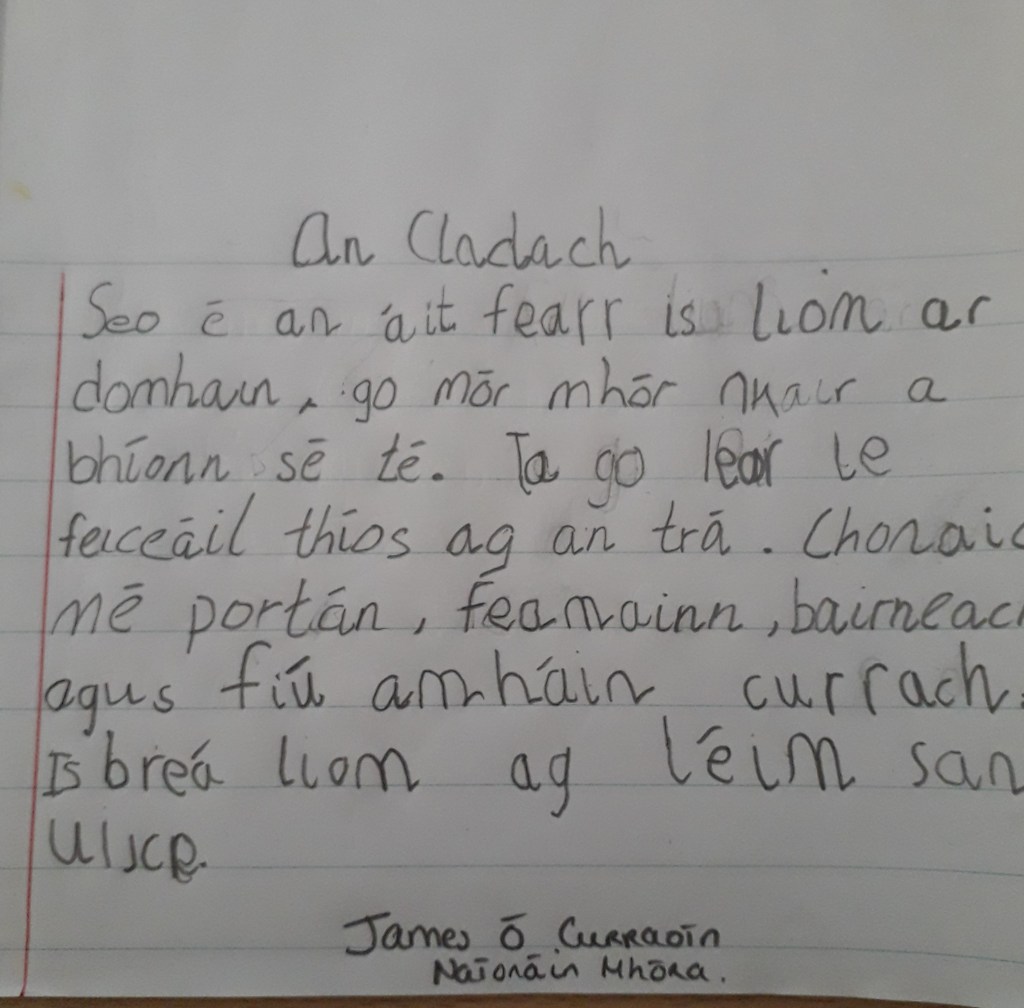 An Cladach
Seo é an áit fearr is liom ar
domhain, go mór mhór nuair a
bhíonn sé té. Ta go lear le
feiceáil thíos ag an trá. Chonaic
mé portán, feamainn, bairneach
agus fiú amháin currach.
Is breá liom ag léim san
uisce.
James Ó Curraoin
Naíonáin Mhóra.